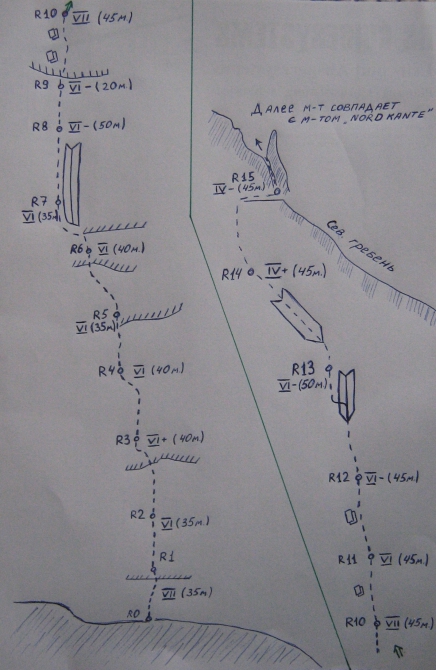 R10 VII (45м)
R9 VI- (20м)
R8 VI- (50м)
R7
VI (35м)
R6 VI (40м)
R5
VI (35м)
R4 VI (40м)
R3 VI+ (40м)
R2 VI (35м)
R1
VII (35м)
R0
Далее м-т совпадает
с м-том „NORDKANTE"
R15
IV- (45м)
Сев. гребень
R14 IV+ (45м)
R13
VI- (50м)
R12 VI- (45м)
R11 VI (45м)
R10 VII (45м)